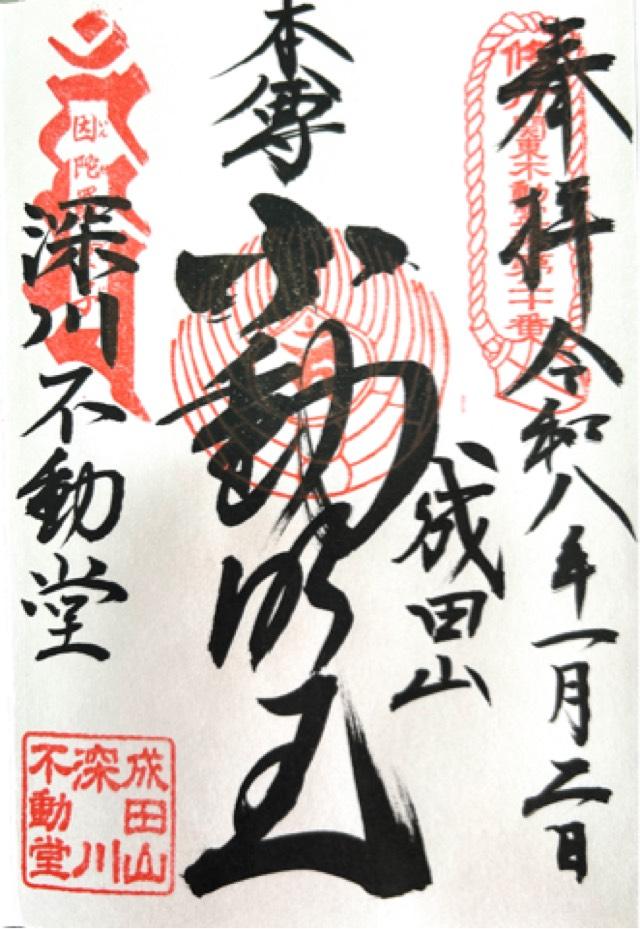 奉拝
令和八年一月二日
成田山
本尊
不動明王
深川不動堂
関東不動
番
因陀
成田山
深川
不動堂